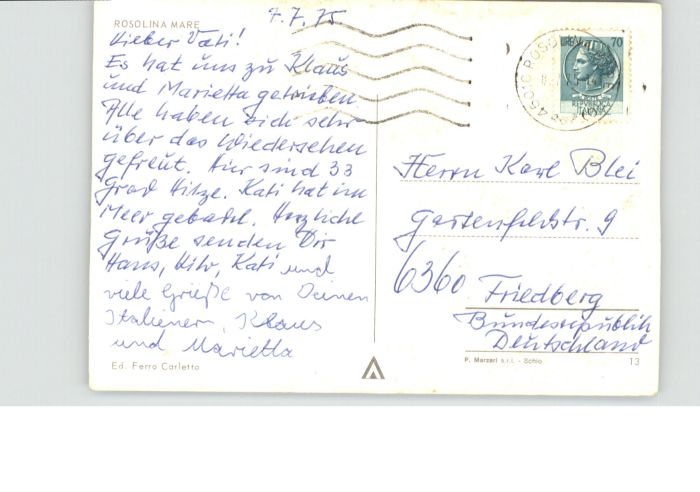 ROSOLINA MARE
7.7.75
Lieber Vati!
Es hat uns zu Klaus
und Marietta getrieben.
Alle haben sich sehr
über das Wiedersehen
gefreut. Hier sind 33
Grad Hitze. Kati hat im
Meer gebadet. Herzliche
Grüße senden Dir
Hans, Kati und
viele Grüße von Deinen
Italienern, Klaus
und Marietta
Ed. Ferro Carletto
70
Herrn Karl Blei
Gartenfeldstr. 9
6360 Friedberg
Bundesrepublik
Deutschland
P. Marzari s.r.l. - Schio
13